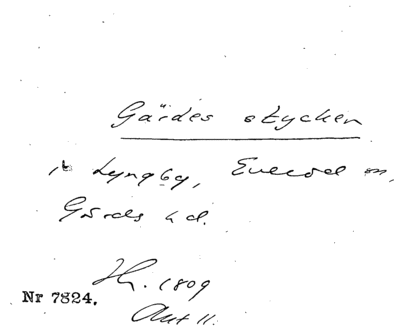 Gärdes stycken
Lyngby, Everöd sn,
Gärds hd.
1809
Nr 7824.
Akt 11.